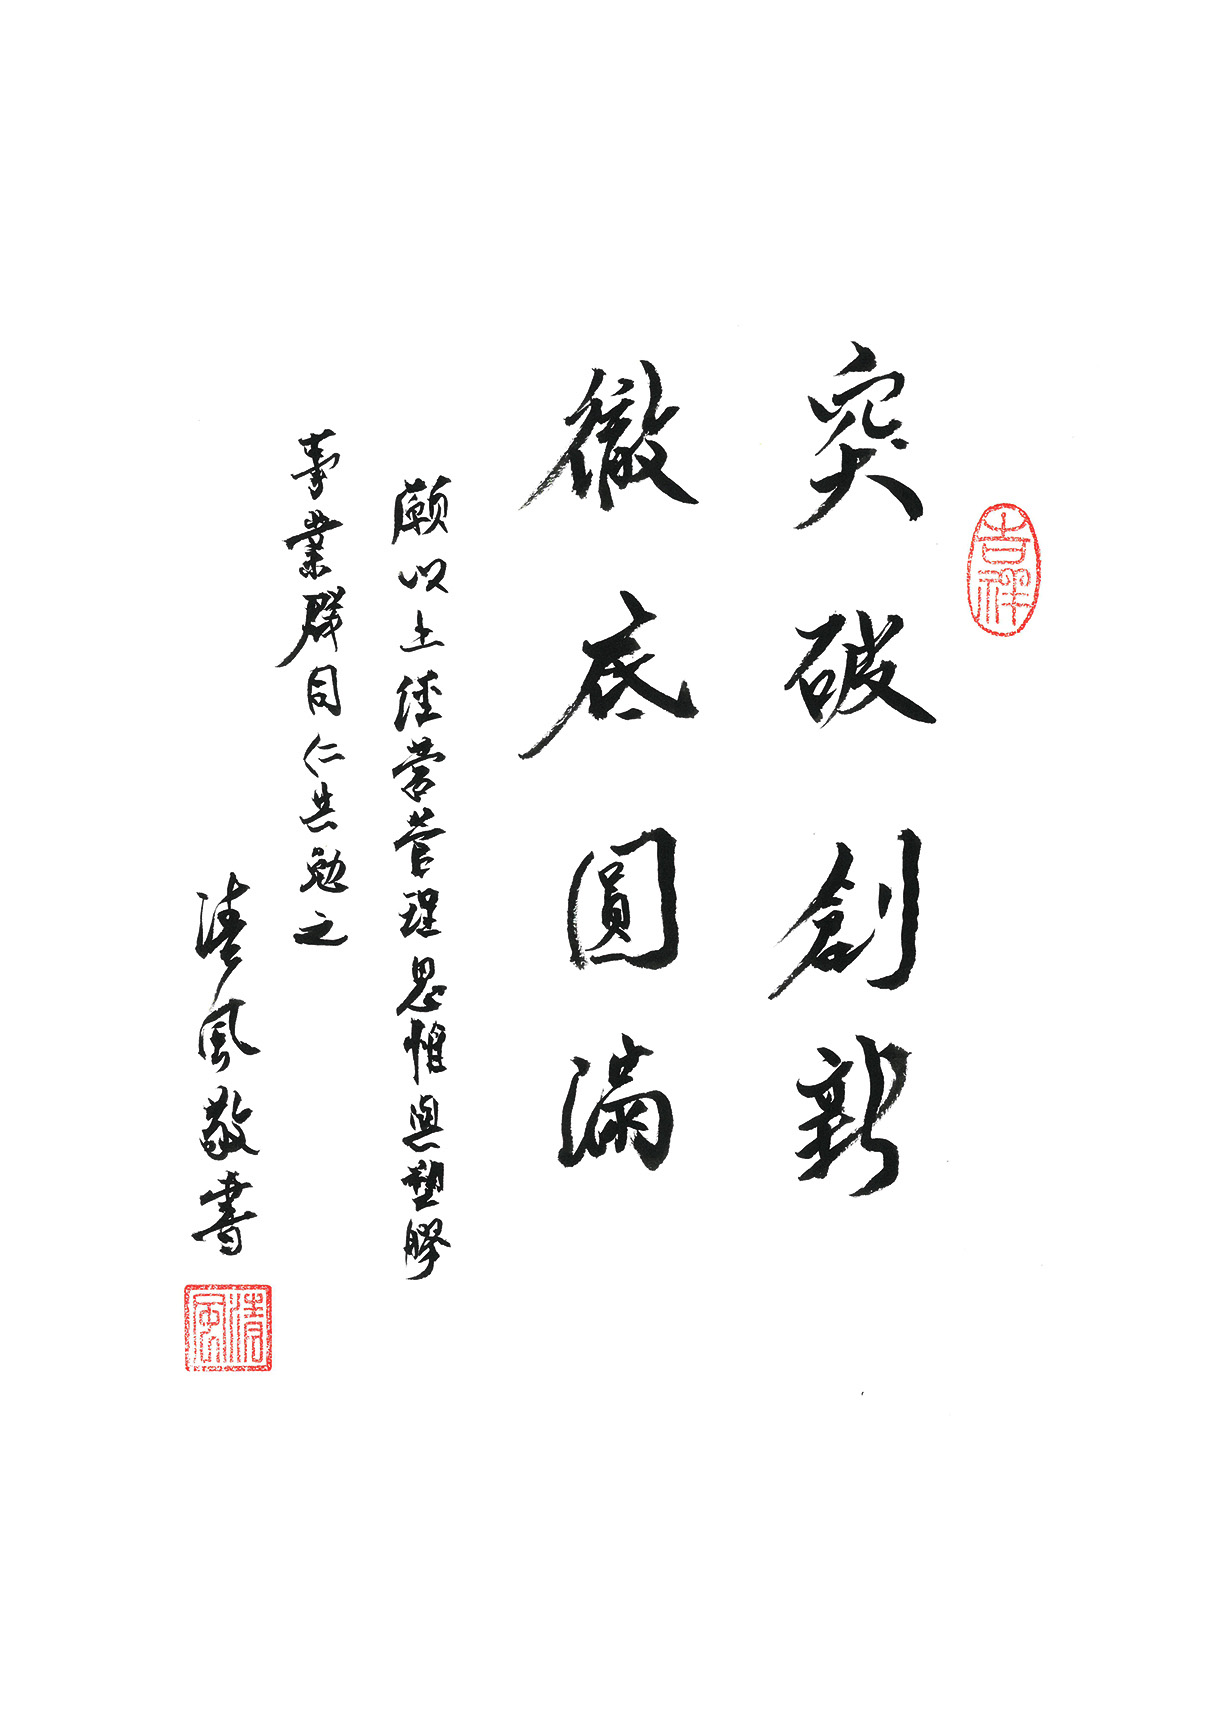 吉祥
突破創新
徹底圓滿
願以上經營管理思惟與塑膠
事業群同仁共勉之
清風敬書
清風